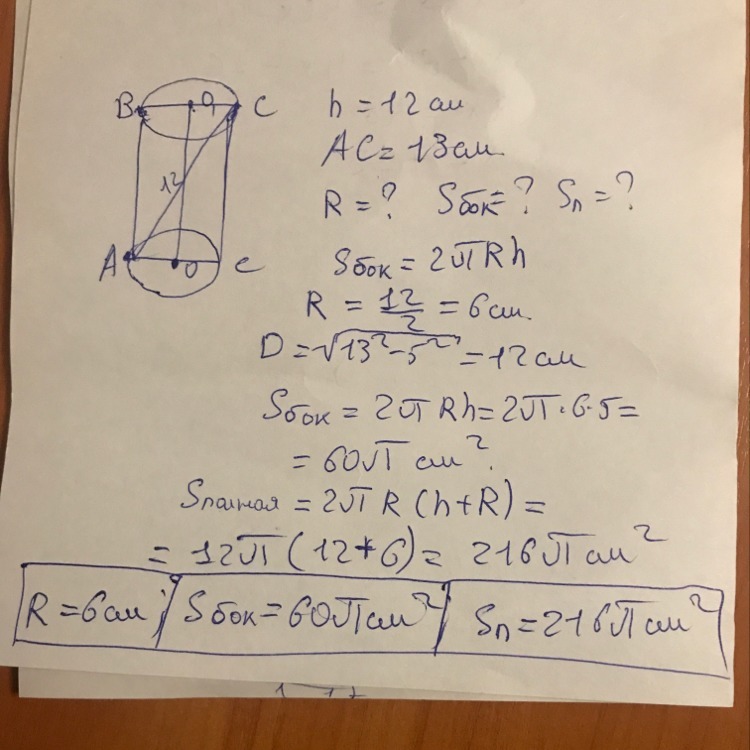 B O C
h = 12 см
AC = 13 см
12
R = ? Sбок = ? Sп = ?
A O C
Sбок = 2πRh
R = 12/2 = 6 см
D = √13² - 5² = 12 см
Sбок = 2πRh = 2π · 6 · 5 =
= 60π см².
Sполная = 2πR (h + R) =
= 12π (12 + 6) = 216π см²
R = 6 см; Sбок = 60π см² Sп = 216π см²